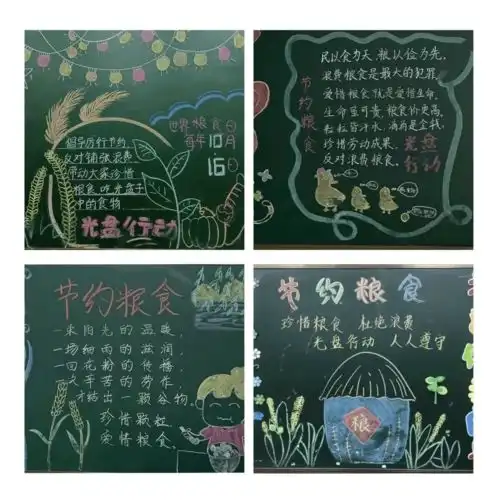 倡导厉行节约
反对铺张浪费
带动大家珍惜
粮食 吃光盘子
中的食物
光盘行动
世界粮食日
每年10月
16日
节约粮食
民以食为天,粮以俭为先。
浪费粮食是最大的犯罪。
爱惜粮食就是爱惜生命。
生命显可贵,粮食价更高。
粒粒皆汗水,滴滴是金钱。
珍惜劳动成果。
反对浪费粮食。
光盘
行动
节约粮食
一米阳光的温暖,
一场细雨的滋润,
一回花粉的传播,
辛苦的劳作,
才结出一颗谷物。
珍惜颗粒
爱惜粮食。
节约粮食
珍惜粮食 杜绝浪费
光盘行动 人人遵守
粮